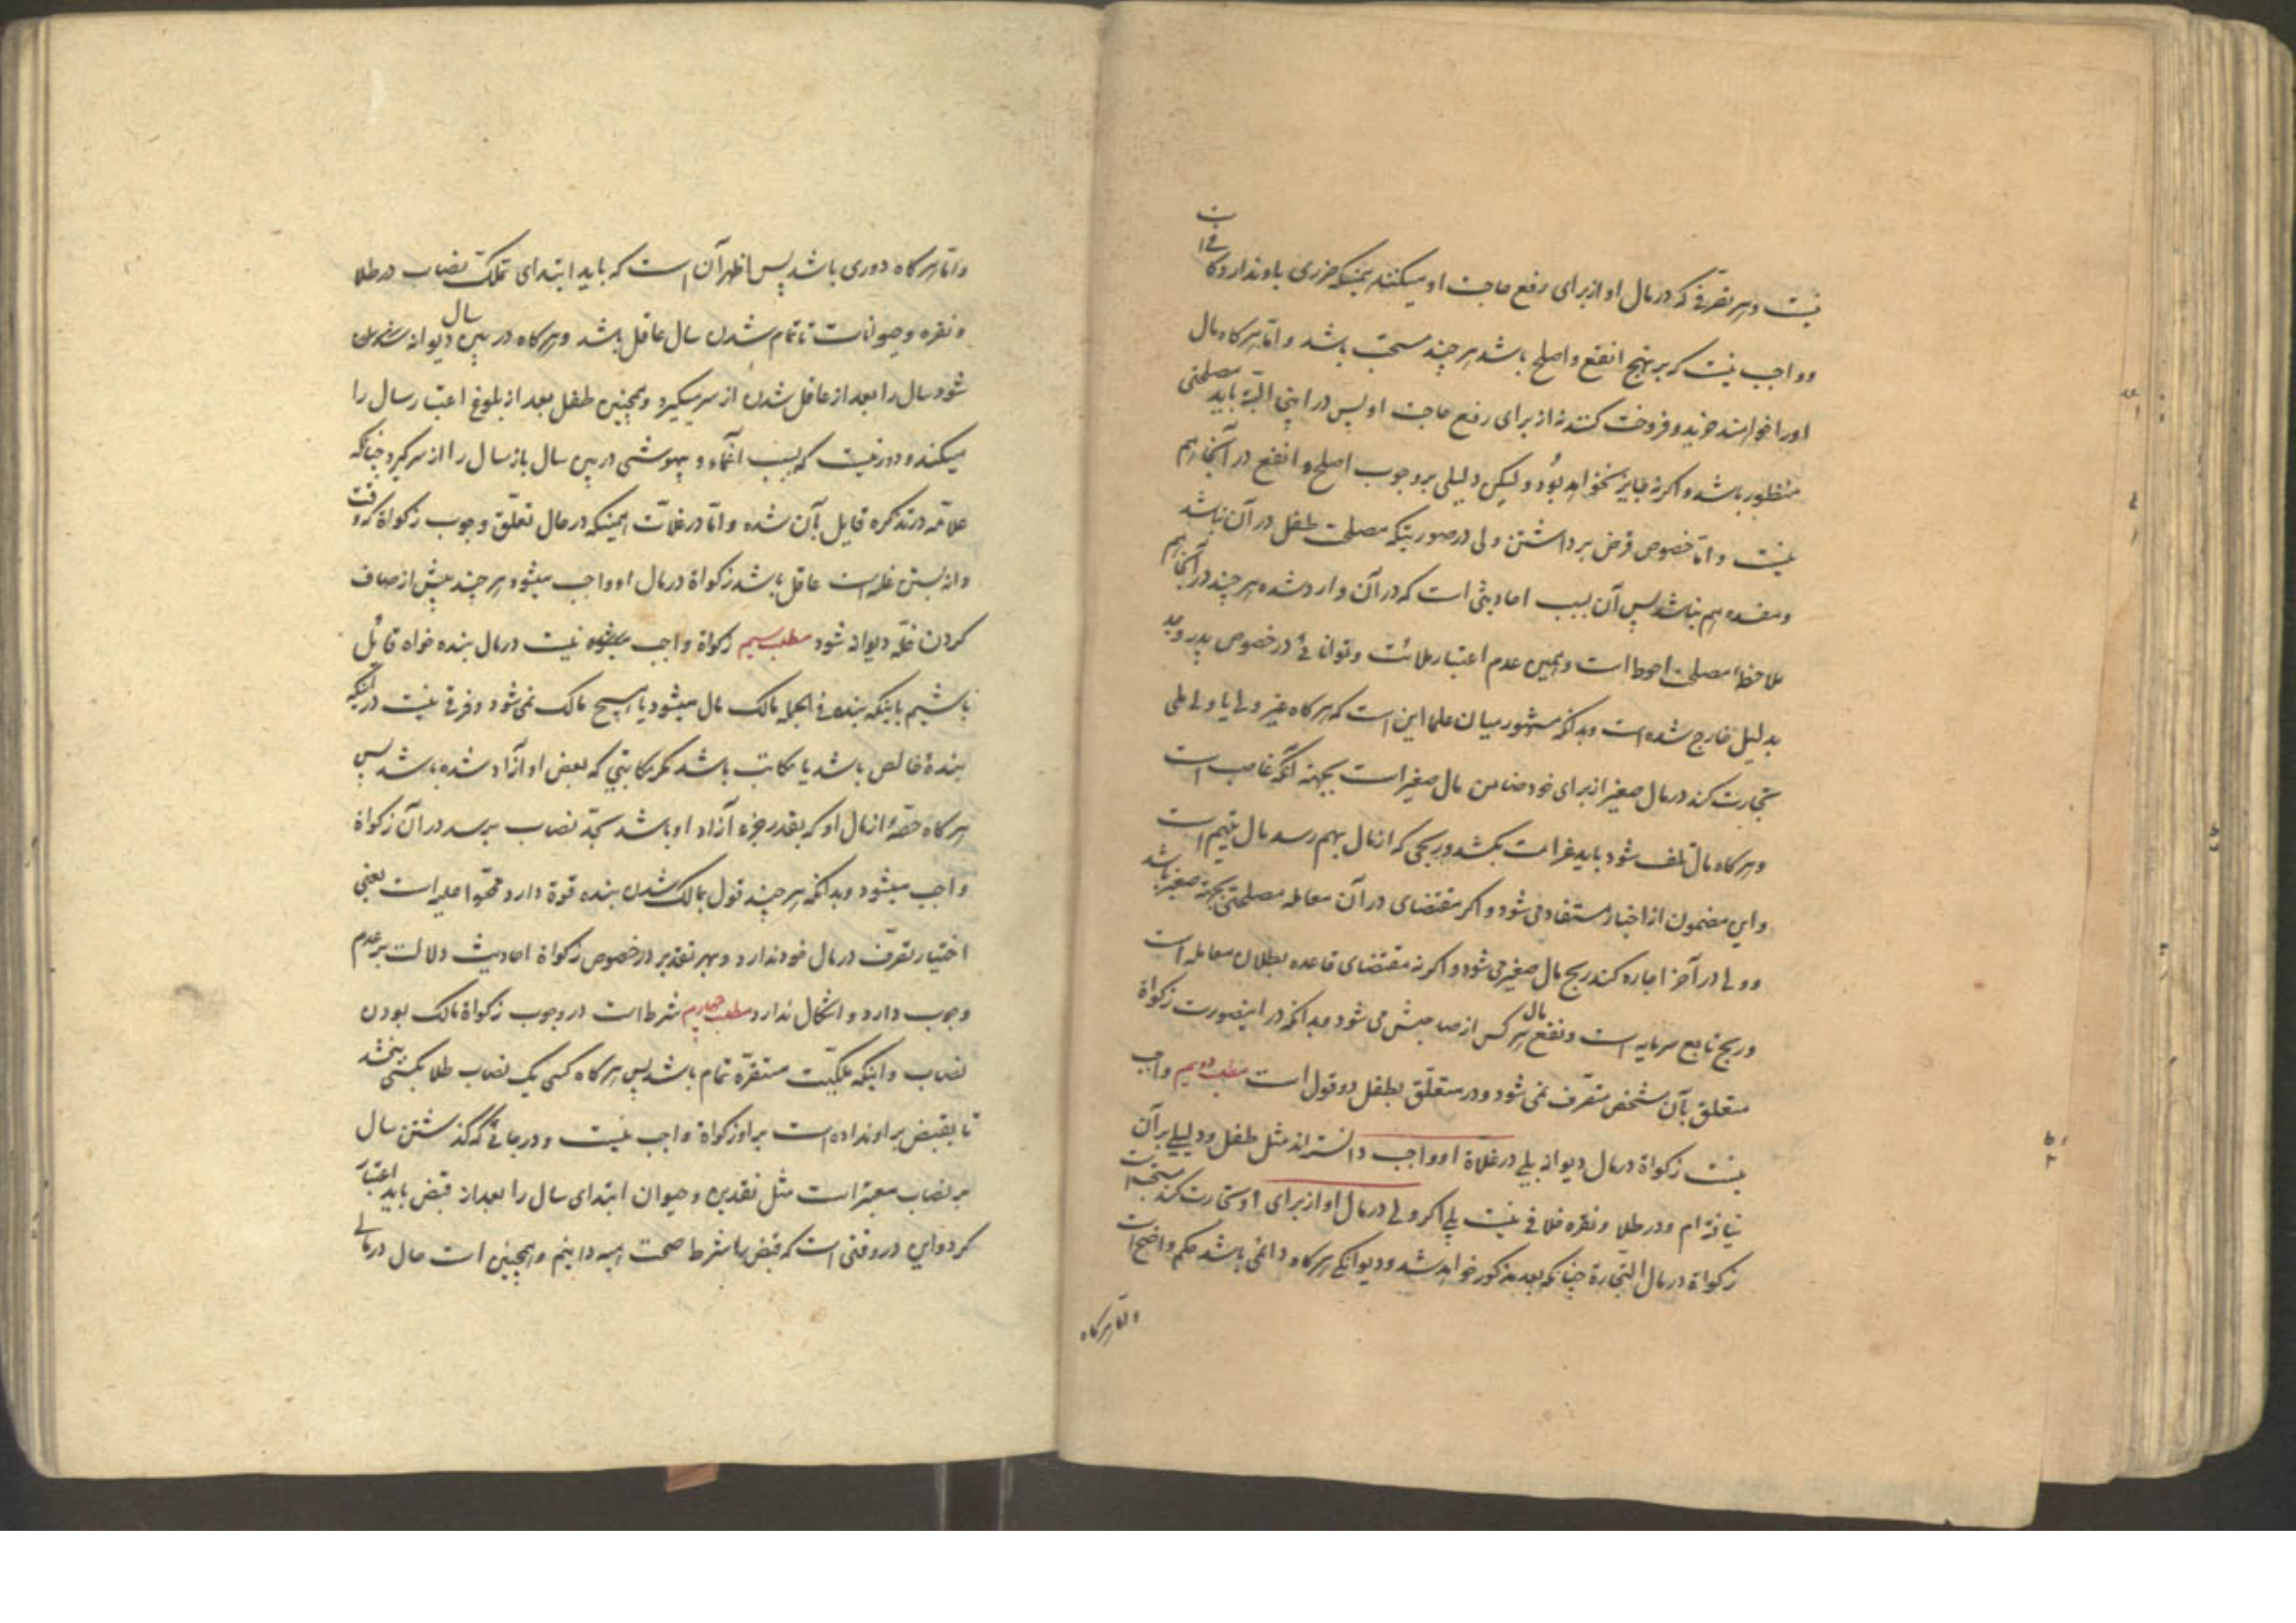 نیست و هر تصرفی که در مال او از برای رفع حاجت او میکنند همینکه ضرری باو ندارد کافی است
و واجب نیست که بر نهج انفع و اصلح باشد هر چند مستحب باشد و اما هر گاه مال
او را خواهند خرید و فروخت کنند نه از برای رفع حاجت او پس در اینی البته باید مصلحتی
منظور باشد و اگر نه جایز نخواهد بود و لیکن دلیلی بر وجوب اصلح و انفع در آنجا هم
نیست و اما خصوص قرض برداشتن ولی در صورتیکه مصلحت طفل در آن نباشد
و مفسده هم نباشد پس آن بسبب احادیثی است که در آن وارد شده هر چند در آنجا هم
ملاحظهٔ مصلحت احوط است و همچنین عدم اعتبار ملائت و توانائی در خصوص پدر و جد
بدلیل خارج شده است و بدانکه مشهور میان علما این است که هر گاه غیر ولی یا ولی ملی
تجارت کند در مال صغیر از برای خود ضامن مال صغیر است بجهة آنکه غاصب است
و هر گاه مال تلف شود باید غرامت بکشد و ربحی که از مال بهم رسد مال یتیم است
و این مضمون از اخبار مستفاد می شود و اگر مقتضای در آن معامله مصلحتی بجهة صغیر باشد
و ولی در آخر اجازه کند ربح مال صغیر می شود و اگر نه مقتضای قاعده بطلان معامله است
و ربح تابع سرمایه است و نفع مال هر کس از صاحبش می شود و بدانکه در اینصورت زکواة
متعلق بآن شخص متصرف نمی شود و در متعلق بطفل دو قول است مطلب دویم واجب
نیست زکواة در مال دیوانه بلی در غلاة او واجب دانسته اند مثل طفل و دلیلی بر آن
نیافته ام و در طلا و نقره خلافی نیست بلی اگر ولی در مال او از برای او تجارت کند مستحب است
زکواة در مال التجارة چنانکه بعد مذکور خواهد شد و دیوانگی هر گاه دائمی باشد حکم واضح است
و اما هر گاه
و اما هر گاه دوری باشد پس اظهر آن است که باید ابتدای تملک نصاب در طلا
و نقره و حیوانات تا تمام شدن سال عاقل باشد و هر گاه در بین سال دیوانه
شود سال را بعد از عاقل شدن از سر میگیرد و همچنین طفل بعد از بلوغ اعتبار سال را
میکند و دور نیست که بسبب اغماء و بیهوشی در بین سال باز سال را از سر گیرد چنانکه
علامه در تذکره قایل بآن شده و اما در غلات همینکه در حال تعلق وجوب زکواة که وقت
دانه بستن غله است عاقل باشد زکواة در مال او واجب میشود هر چند پیش از صاف
کردن غله دیوانه شود مطلب سیم زکواة واجب نیست در مال بنده خواه قائل
باشیم باینکه بنده فی الجمله مالک مال میشود یا هیچ مالک نمی شود و فرقی نیست در اینکه
بندهٔ خالص باشد یا مکاتب باشد مگر مکاتبی که بعض او آزاد شده باشد پس
هر گاه حصهٔ از مال او که بقدر جزء آزاد او باشد بحد نصاب برسد در آن زکواة
واجب میشود و بدانکه هر چند قول بمالک شدن بنده قوة دارد محجوا علیه است یعنی
اختیار تصرف در مال خود ندارد و بهر تقدیر در خصوص زکواة احادیث دلالت بر عدم
وجوب دارد و اشکال ندارد مطلب چهارم شرط است در وجوب زکواة مالک بودن
نصاب و اینکه ملکیت مستقره تمام باشد پس هر گاه کسی یک نصاب طلا بکسی ببخشد
تا بقبض بر او نداده است بر او زکواة واجب نیست و در جائی که گذشتن سال
بر نصاب معتبر است مثل نقدین و حیوان ابتدای سال را بعد از قبض باید اعتبار
کرد و این در وقتی است که قبض را شرط صحت هبه دانیم و همچنین است حال در مالی